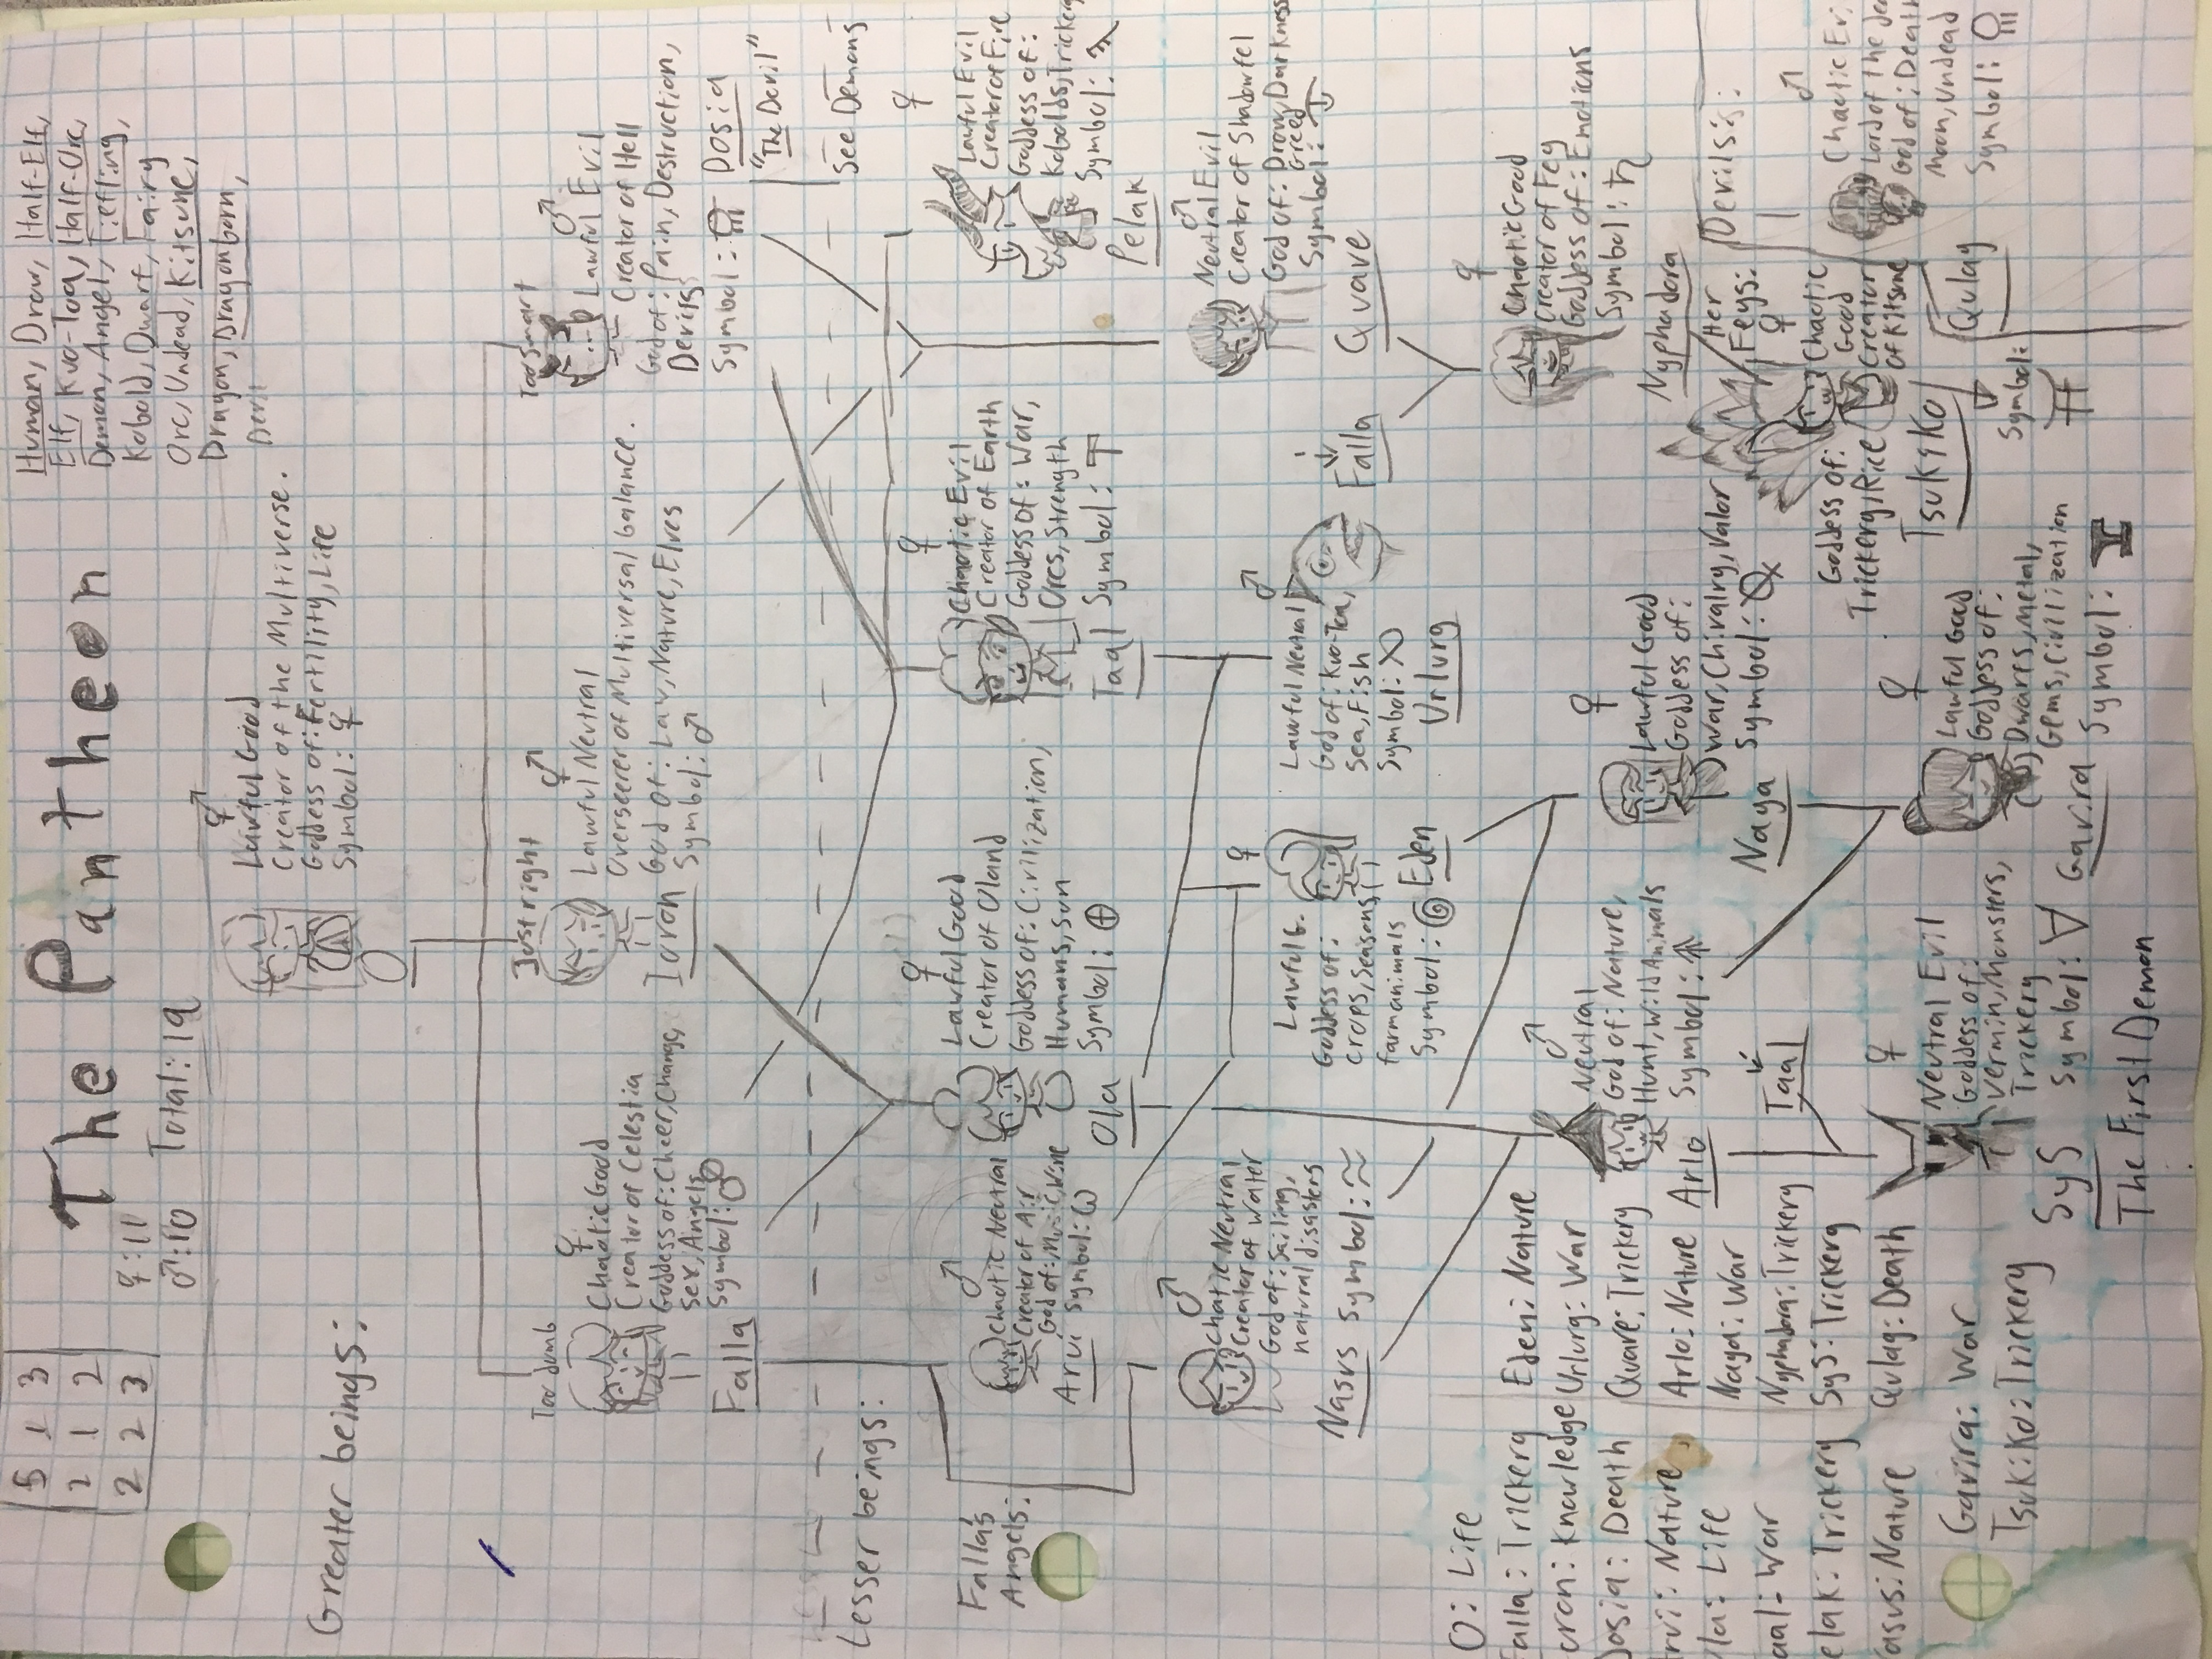 5 1 3
2 1 2
2 2 3
The Pantheon
♀:11
♂:10 Total: 19
Human, Drow, Half-Elf,
Elf, Kuo-Toa, Half-Orc,
Demon, Angel, Tiefling,
Kobold, Dwarf, Fairy
Orc, Undead, Kitsune,
Dragon, Dragonborn,
Devil
Greater beings:
Lawful Good
Creator of the Multiverse.
Goddess of: Fertility, Life
Symbol: ♀
O
Too dumb
♀
Chaotic Good
Creator of Celestia
Goddess of: Cheer, Change,
Sex, Angels
Symbol:
Falla
Just right
Lawful Neutral
Overseerer of Multiversal balance.
God of: Law, Nature, Elves
Symbol: ♂
Ioron
Too smart
♂
Lawful Evil
Creator of Hell
God of: Pain, Destruction,
Devils
Symbol:
Dosia
"The Devil"
See Demons
Lesser beings:
Falla's
Angels:
♂
Chaotic Neutral
Creator of Air
God of: Music, Wine
Symbol: ω
Arvi
♀
Lawful Good
Creator of Oland
Goddess of: Civilization,
Humans, Sun
Symbol: ⊕
Ola
♀
Chaotic Evil
Creator of Earth
Goddess of: War,
Orcs, Strength
Symbol:
Taal
♀
Lawful Evil
Creator of Fire
Goddess of:
Kobolds, Trickery
Symbol:
Pelak
♂
Chatic Neutral
Creator of Water
God of: Sailing,
natural disasters
Nasus Symbol: ≈
♀
Lawful G.
Goddess of:
crops, seasons,
farmanimals
Symbol:
Eden
♂
Lawful Neutral
God of: Kuo-Toa,
Sea, Fish
Symbol:
Urlurg
♂
Neutral Evil
Creator of Shadowfel
God of: Drow, Darkness
Greed
Symbol:
Falla Quave
♀
Chaotic Good
Creator of Fey
Goddess of: Emotions
Symbol: ♄
Nyphadora
O: Life
Falla: Trickery
oron: Knowledge
Dosia: Death
rvi: Nature,
la: Life
aal: War
elak: Trickery
asus: Nature
Eden: Nature
Urlurg: War
Quave: Trickery
Arlo: Nature
Naya: War
Nyphadora: Trickery
SyS: Trickery
Qulag: Death
Gavira: War
Tsukiko: Trickery
♂
Neutral
God of: Nature,
Hunt, Wild Animals
Symbol:
Arlo
Taal
♀
Lawful Good
Goddess of:
War, Chivalry, Valor
Symbol:
Naya
Her
Feys:
♀
Chaotic
Good
Creator
of Kitsune
Goddess of:
Trickery, Rice
Tsukiko
Symbol:
Devils:
♂
Chaotic Evi
Lord of The
God of: Death
Moon, Undead
Symbol:
Qulag
♀
Neutral Evil
Goddess of:
Vermin, Monsters,
Trickery
Symbol: ∀
SyS
The First Demon
♀
Lawful Good
Goddess of:
Dwarfs, Metal,
Gems, Civilization
Symbol:
Gavira